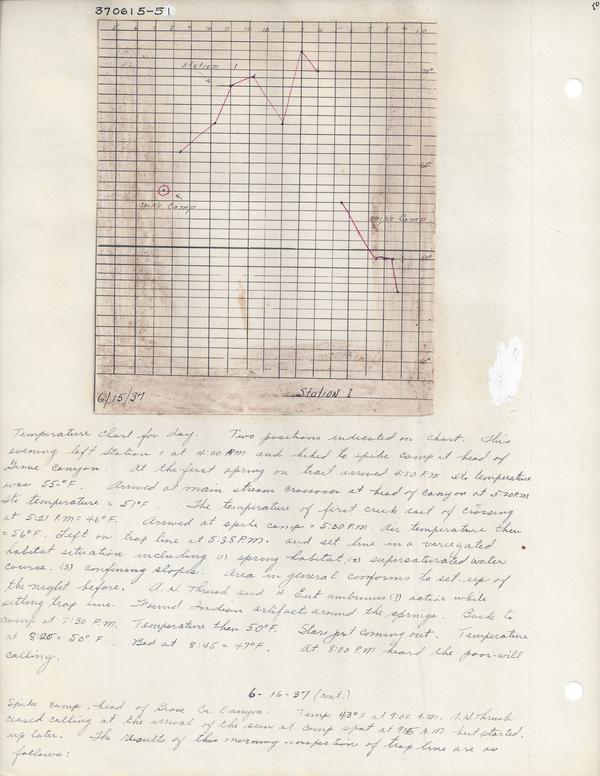 370615-51
Station 1
70°
60°
Spike Camp
Spike Camp
50°
40°
6/15/37 Station 1
Temperature Chart for day. Two positions indicated on chart. This
evening left Station 1 at 4:00 P.M and hiked to spike camp at head of
Grove Canyon. At the first spring on trail arrived 4:50 P.M. its temperature
was 55°F. Arrived at main stream crossover at head of canyon at 5:20 P.M
Its temperature = 51°F. The temperature of first creek east of crossing
at 5:21 P.M = 46°F. Arrived at spike camp = 5:30 P.M. Air temperature then
= 56°F. Left on trap line at 5:38 P.M. and set line in a variegated
habitat situation including (1) spring habitat, (2) supersaturated water
course, (3) confining slopes. Area in general conforms to set-up of
the night before. A. H. Thrush and 4 Eut umbrinus (?) active while
setting trap line. Found Indian artifacts around the springs. Back to
camp at 7:30 P.M. Temperature then 50°F. Stars just coming out. Temperature
at 8:20 = 50°F. Bed at 8:45 = 47°F. At 8:00 P.M heard the poor-will
calling.
6-16-37 (cont.)
Spike camp, head of Grove Cr. Canyon. Temp 43°F at 9:00 A.M. A.H. Thrush
ceased calling at the arrival of the sun at camp spot at A.M but started
up later. The results of this morning inspection of trap line are as
follows: